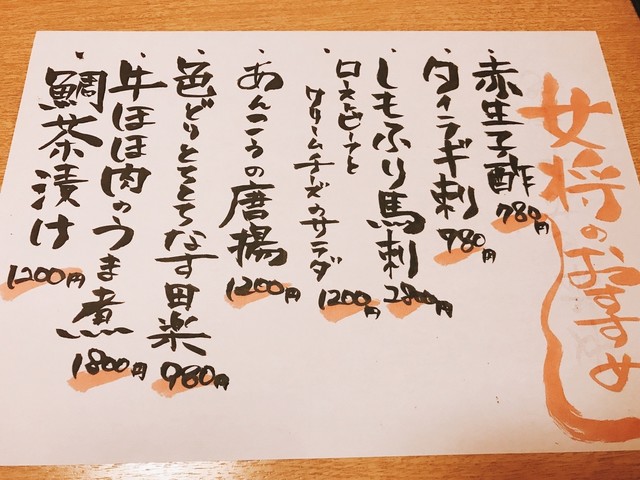 女将のおすすめ
・赤生子酢
780円
・タイラギ刺
980円
・しもふり馬刺
2800円
・ローストビーフと
クリームチーズのサラダ
1200円
・あんこうの唐揚
1200円
・色どりとててなす田楽
980円
・牛ほほ肉のうま煮
1800円
・鯛茶漬け
1200円